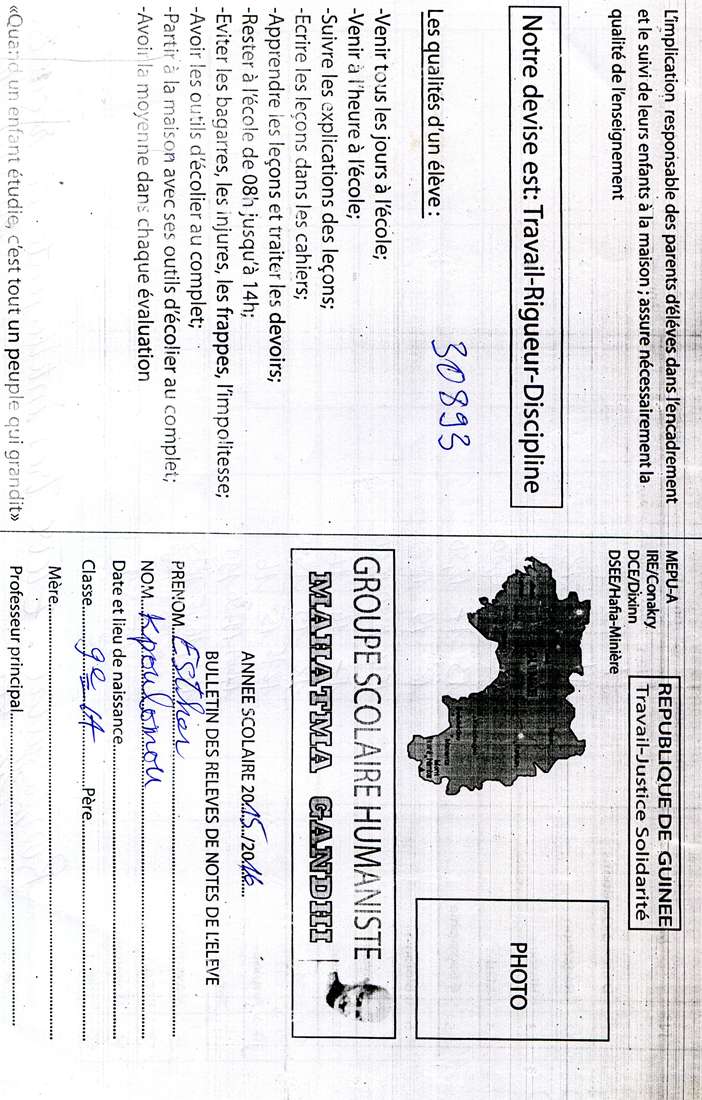 L'implication responsable des parents d'éléves dans l'encadrement
et le suivi de leurs enfants à la maison ; assure nécessairement la
qualité de l'enseignement
Notre devise est: Travail-Rigueur-Discipline
Les qualités d'un élève :
30893
-Venir tous les jours à l'école;
-Venir à l'heure à l'école;
-Suivre les explications des leçons;
-Ecrire les leçons dans les cahiers;
-Apprendre les leçons et traiter les devoirs;
-Rester à l'école de 08h jusqu'à 14h;
-Eviter les bagarres, les injures, les frappes, l'impolitesse;
-Avoir les outils d'écolier au complet;
-Partir à la maison avec ses outils d'écolier au complet;
-Avoir la moyenne dans chaque évaluation
«Quand un enfant étudie, c'est tout un peuple qui grandit»
MEPU-A
IRE/Conakry
DCE/Dixinn
DSEE/Hafia-Minière
REPUBLIQUE DE GUINEE
Travail-Justice Solidarité
PHOTO
GROUPE SCOLAIRE HUMANISTE
MAHATMA GANDHI
ANNEE SCOLAIRE 2015/2016
BULLETIN DES RELEVES DE NOTES DE L'ELEVE
PRENOM Esther
NOM Kpoulomou
Date et lieu de naissance
Classe 9e IA Père
Mère
Professeur principal